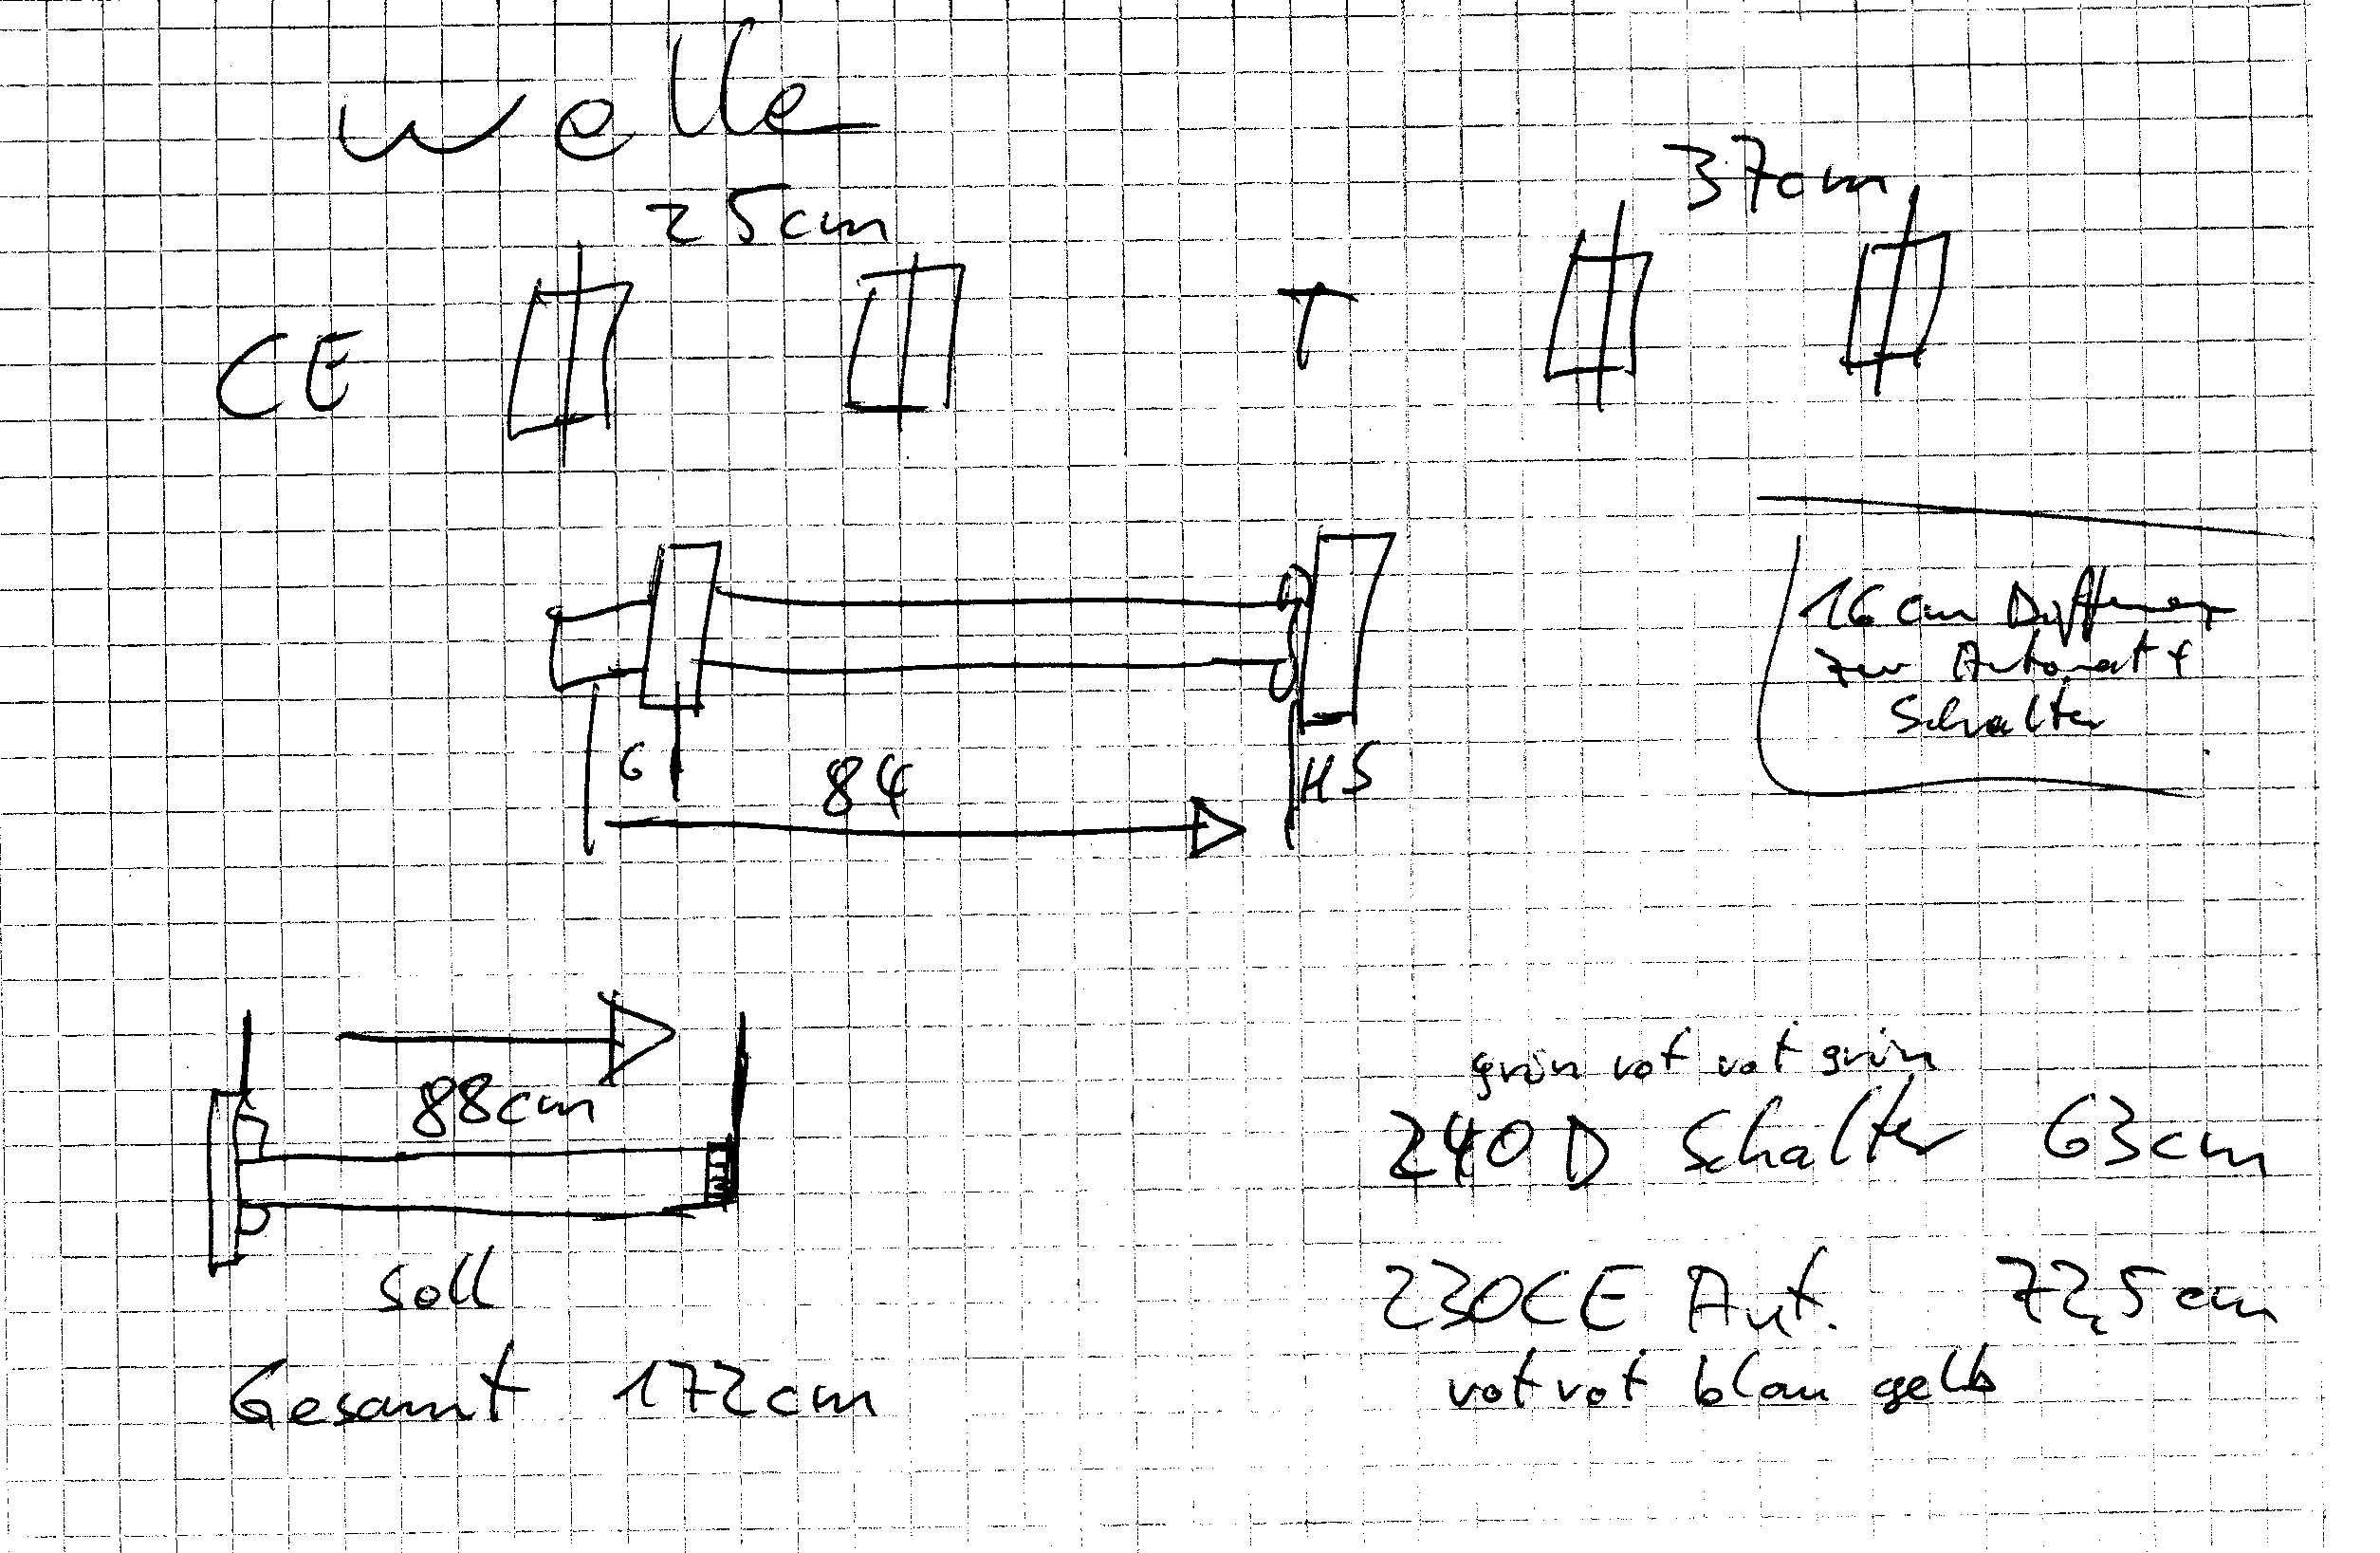 Welle
25cm
37cm
CE
T
16 cm Differenz
zur Automat +
Schalter
6
84
HS
88cm
grün rot rot grün
240 D Schalter 63cm
soll
230CE Aut. 72,5cm
Gesamt 172cm
rot rot blau gelb